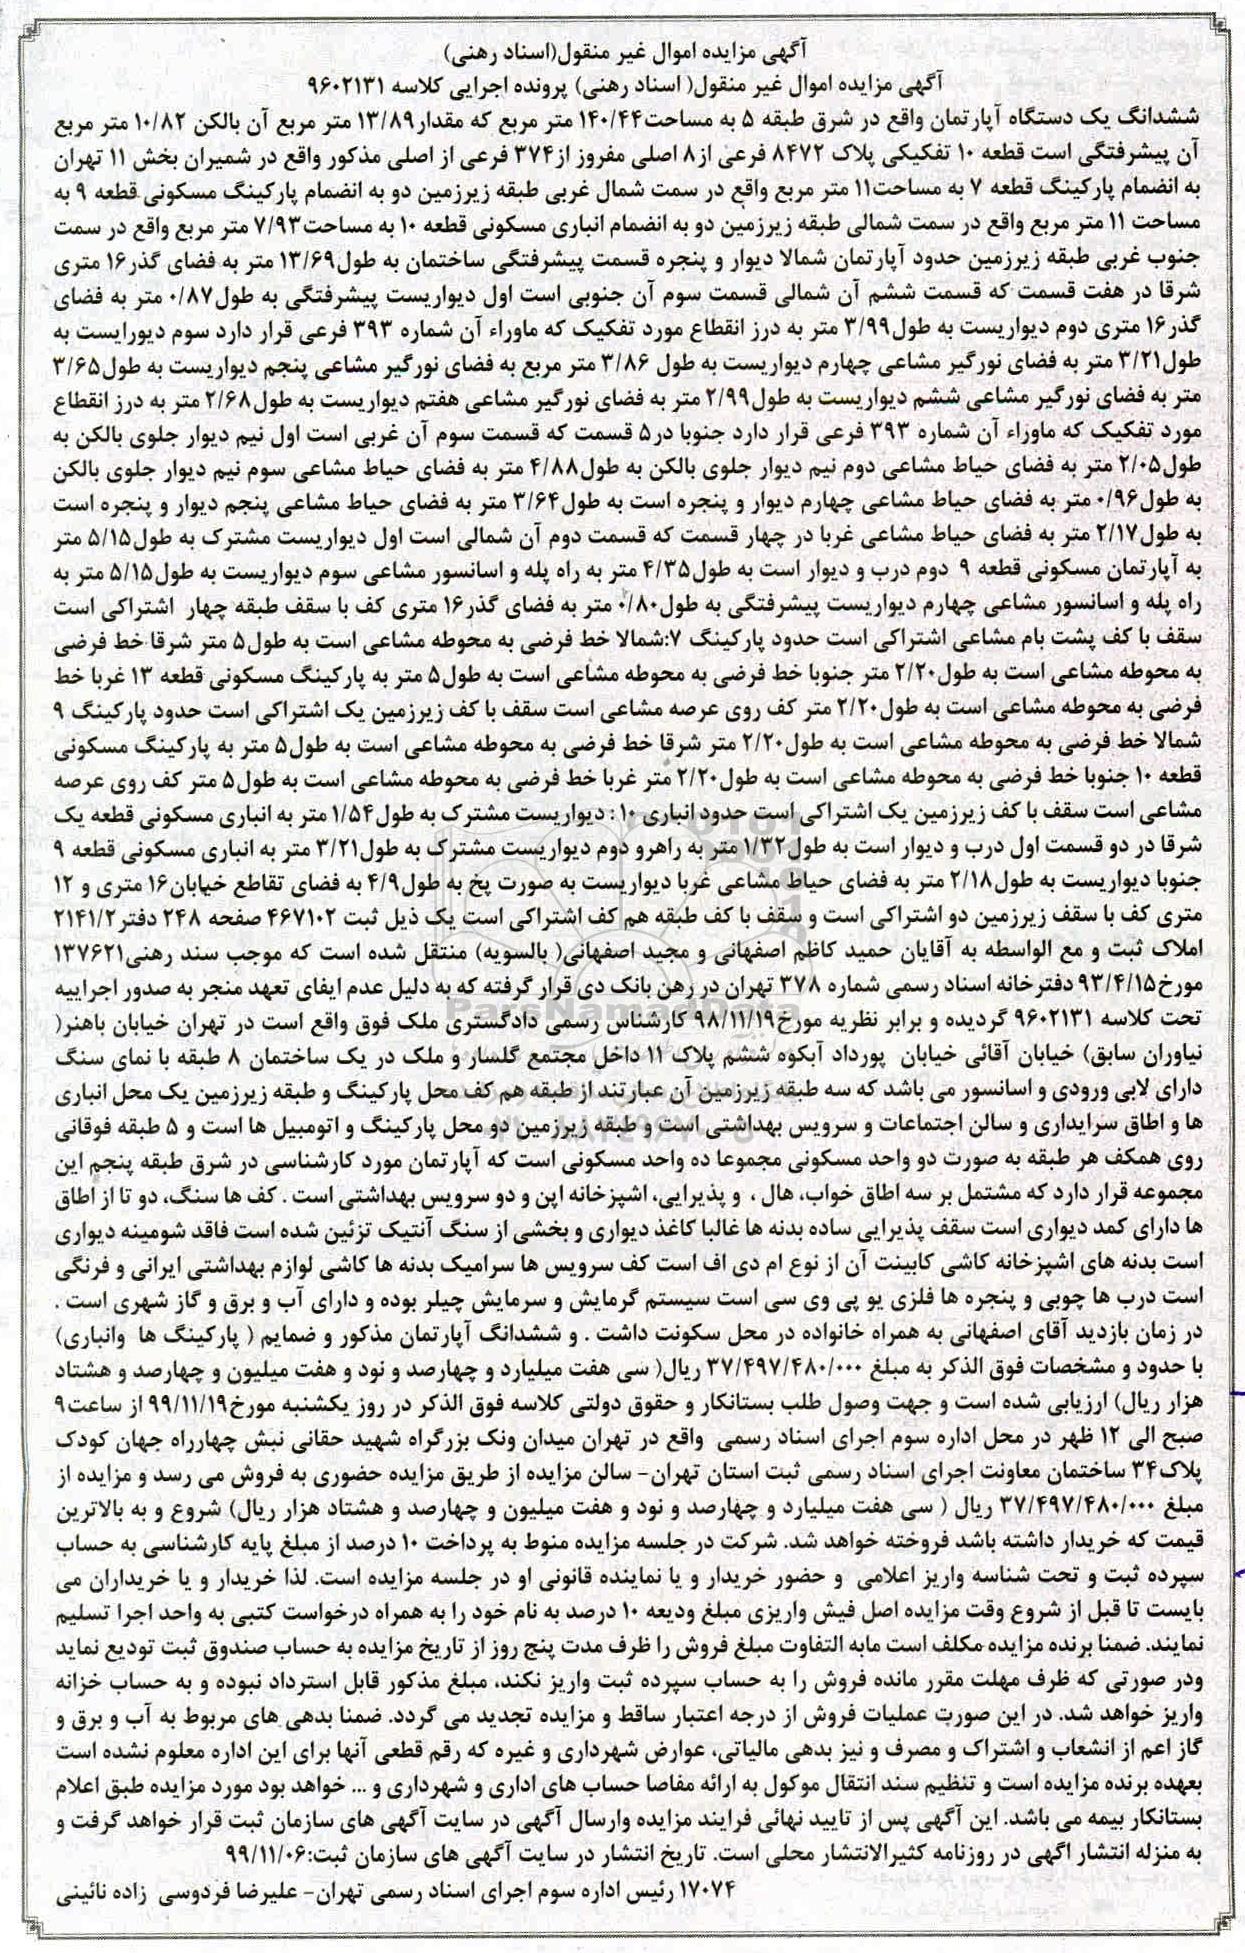 آگهی مزایده اموال غیر منقول(اسناد رهنی)
آگهی مزایده اموال غیر منقول( اسناد رهنی) پرونده اجرایی کلاسه ۹۶۰۲۱۳۱
ششدانگ یک دستگاه آپارتمان واقع در شرق طبقه ۵ به مساحت۱۴۰/۴۴ متر مربع که مقدار۱۳/۸۹ متر مربع آن بالکن ۱۰/۸۲ متر مربع
آن پیشرفتگی است قطعه ۱۰ تفکیکی پلاک ۸۴۷۲ فرعی از۸ اصلی مفروز از۳۷۴ فرعی از اصلی مذکور واقع در شمیران بخش ۱۱ تهران
به انضمام پارکینگ قطعه ۷ به مساحت۱۱ متر مربع واقع در سمت شمال غربی طبقه زیرزمین دو به انضمام پارکینگ مسکونی قطعه ۹ به
مساحت ۱۱ متر مربع واقع در سمت شمالی طبقه زیرزمین دو به انضمام انباری مسکونی قطعه ۱۰ به مساحت۷/۹۳ متر مربع واقع در سمت
جنوب غربی طبقه زیرزمین حدود آپارتمان شمالا دیوار و پنجره قسمت پیشرفتگی ساختمان به طول۱۳/۶۹ متر به فضای گذر۱۶ متری
شرقا در هفت قسمت که قسمت ششم آن شمالی قسمت سوم آن جنوبی است اول دیواریست پیشرفتگی به طول۰/۸۷ متر به فضای
گذر۱۶ متری دوم دیواریست به طول۳/۹۹ متر به درز انقطاع مورد تفکیک که ماوراء آن شماره ۳۹۳ فرعی قرار دارد سوم دیورایست به
طول۳/۲۱ متر به فضای نورگیر مشاعی چهارم دیواریست به طول ۳/۸۶ متر مربع به فضای نورگیر مشاعی پنجم دیواریست به طول۳/۶۵
متر به فضای نورگیر مشاعی ششم دیواریست به طول۲/۹۹ متر به فضای نورگیر مشاعی هفتم دیواریست به طول۲/۶۸ متر به درز انقطاع
مورد تفکیک که ماوراء آن شماره ۳۹۳ فرعی قرار دارد جنوبا در۵ قسمت که قسمت سوم آن غربی است اول نیم دیوار جلوی بالکن به
طول۲/۰۵ متر به فضای حیاط مشاعی دوم نیم دیوار جلوی بالکن به طول۴/۸۸ متر به فضای حیاط مشاعی سوم نیم دیوار جلوی بالکن
به طول۰/۹۶ متر به فضای حیاط مشاعی چهارم دیوار و پنجره است به طول۳/۶۴ متر به فضای حیاط مشاعی پنجم دیوار و پنجره است
به طول۲/۱۷ متر به فضای حیاط مشاعی غربا در چهار قسمت که قسمت دوم آن شمالی است اول دیواریست مشترک به طول۵/۱۵ متر
به آپارتمان مسکونی قطعه ۹ دوم درب و دیوار است به طول۴/۳۵ متر به راه پله و اسانسور مشاعی سوم دیواریست به طول۵/۱۵ متر به
راه پله و اسانسور مشاعی چهارم دیواریست پیشرفتگی به طول۰/۸۰ متر به فضای گذر۱۶ متری کف با سقف طبقه چهار اشتراکی است
سقف با کف پشت بام مشاعی اشتراکی است حدود پارکینگ ۷:شمالا خط فرضی به محوطه مشاعی است به طول۵ متر شرقا خط فرضی
به محوطه مشاعی است به طول۲/۲۰ متر جنوبا خط فرضی به محوطه مشاعی است به طول۵ متر به پارکینگ مسکونی قطعه ۱۳ غربا خط
فرضی به محوطه مشاعی است به طول۲/۲۰ متر کف روی عرصه مشاعی است سقف با کف زیرزمین یک اشتراکی است حدود پارکینگ ۹
شمالا خط فرضی به محوطه مشاعی است به طول۲/۲۰ متر شرقا خط فرضی به محوطه مشاعی است به طول۵ متر به پارکینگ مسکونی
قطعه ۱۰ جنوبا خط فرضی به محوطه مشاعی است به طول۲/۲۰ متر غربا خط فرضی به محوطه مشاعی است به طول۵ متر کف روی عرصه
مشاعی است سقف با کف زیرزمین یک اشتراکی است حدود انباری ۱۰ : دیواریست مشترک به طول۱/۵۴ متر به انباری مسکونی قطعه یک
شرقا در دو قسمت اول درب و دیوار است به طول۱/۳۲ متر به راهرو دوم دیواریست مشترک به طول۳/۲۱ متر به انباری مسکونی قطعه ۹
جنوبا دیواریست به طول۲/۱۸ متر به فضای حیاط مشاعی غربا دیواریست به صورت پخ به طول۴/۹ به فضای تقاطع خیابان۱۶ متری و ۱۲
متری کف با سقف زیرزمین دو اشتراکی است و سقف با کف طبقه هم کف اشتراکی است یک ذیل ثبت ۴۶۷۱۰۲ صفحه ۲۴۸ دفتر۲۱۴۱/۲
املاک ثبت و مع الواسطه به آقایان حمید کاظم اصفهانی و مجید اصفهانی( بالسویه) منتقل شده است که موجب سند رهنی۱۳۷۶۲۱
مورخ۹۳/۴/۱۵ دفترخانه اسناد رسمی شماره ۳۷۸ تهران در رهن بانک دی قرار گرفته که به دلیل عدم ایفای تعهد منجر به صدور اجراییه
تحت کلاسه ۹۶۰۲۱۳۱ گردیده و برابر نظریه مورخ۹۸/۱۱/۱۹ کارشناس رسمی دادگستری ملک فوق واقع است در تهران خیابان باهنر(
نیاوران سابق) خیابان آقائی خیابان پورداد آبکوه ششم پلاک ۱۱ داخل مجتمع گلسار و ملک در یک ساختمان ۸ طبقه با نمای سنگ
دارای لابی ورودی و اسانسور می باشد که سه طبقه زیرزمین آن عبارتند از طبقه هم کف محل پارکینگ و طبقه زیرزمین یک محل انباری
ها و اطاق سرایداری و سالن اجتماعات و سرویس بهداشتی است و طبقه زیرزمین دو محل پارکینگ و اتومبیل ها است و ۵ طبقه فوقانی
روی همکف هر طبقه به صورت دو واحد مسکونی مجموعا ده واحد مسکونی است که آپارتمان مورد کارشناسی در شرق طبقه پنجم این
مجموعه قرار دارد که مشتمل بر سه اطاق خواب، هال ، و پذیرایی، اشپزخانه اپن و دو سرویس بهداشتی است . کف ها سنگ، دو تا از اطاق
ها دارای کمد دیواری است سقف پذیرایی ساده بدنه ها غالبا کاغذ دیواری و بخشی از سنگ آنتیک تزئین شده است فاقد شومینه دیواری
است بدنه های اشپزخانه کاشی کابینت آن از نوع ام دی اف است کف سرویس ها سرامیک بدنه ها کاشی لوازم بهداشتی ایرانی و فرنگی
است درب ها چوبی و پنجره ها فلزی یو پی وی سی است سیستم گرمایش و سرمایش چیلر بوده و دارای آب و برق و گاز شهری است .
در زمان بازدید آقای اصفهانی به همراه خانواده در محل سکونت داشت . و ششدانگ آپارتمان مذکور و ضمایم ( پارکینگ ها وانباری)
با حدود و مشخصات فوق الذکر به مبلغ ۳۷/۴۹۷/۴۸۰/۰۰۰ ریال( سی هفت میلیارد و چهارصد و نود و هفت میلیون و چهارصد و هشتاد
هزار ریال) ارزیابی شده است و جهت وصول طلب بستانکار و حقوق دولتی کلاسه فوق الذکر در روز یکشنبه مورخ۹۹/۱۱/۱۹ از ساعت۹
صبح الی ۱۲ ظهر در محل اداره سوم اجرای اسناد رسمی واقع در تهران میدان ونک بزرگراه شهید حقانی نبش چهارراه جهان کودک
پلاک۳۴ ساختمان معاونت اجرای اسناد رسمی ثبت استان تهران- سالن مزایده از طریق مزایده حضوری به فروش می رسد و مزایده از
مبلغ ۳۷/۴۹۷/۴۸۰/۰۰۰ ریال ( سی هفت میلیارد و چهارصد و نود و هفت میلیون و چهارصد و هشتاد هزار ریال) شروع و به بالاترین
قیمت که خریدار داشته باشد فروخته خواهد شد. شرکت در جلسه مزایده منوط به پرداخت ۱۰ درصد از مبلغ پایه کارشناسی به حساب
سپرده ثبت و تحت شناسه واریز اعلامی و حضور خریدار و یا نماینده قانونی او در جلسه مزایده است. لذا خریدار و یا خریداران می
بایست تا قبل از شروع وقت مزایده اصل فیش واریزی مبلغ ودیعه ۱۰ درصد به نام خود را به همراه درخواست کتبی به واحد اجرا تسلیم
نمایند. ضمنا برنده مزایده مکلف است مابه التفاوت مبلغ فروش را ظرف مدت پنج روز از تاریخ مزایده به حساب صندوق ثبت تودیع نماید
ودر صورتی که ظرف مهلت مقرر مانده فروش را به حساب سپرده ثبت واریز نکند، مبلغ مذکور قابل استرداد نبوده و به حساب خزانه
واریز خواهد شد. در این صورت عملیات فروش از درجه اعتبار ساقط و مزایده تجدید می گردد. ضمنا بدهی های مربوط به آب و برق و
گاز اعم از انشعاب و اشتراک و مصرف و نیز بدهی مالیاتی، عوارض شهرداری و غیره که رقم قطعی آنها برای این اداره معلوم نشده است
بعهده برنده مزایده است و تنظیم سند انتقال موکول به ارائه مفاصا حساب های اداری و شهرداری و ... خواهد بود مورد مزایده طبق اعلام
بستانکار بیمه می باشد. این آگهی پس از تایید نهائی فرایند مزایده وارسال آگهی در سایت آگهی های سازمان ثبت قرار خواهد گرفت و
به منزله انتشار اگهی در روزنامه کثیرالانتشار محلی است. تاریخ انتشار در سایت آگهی های سازمان ثبت:۹۹/۱۱/۰۶
۱۷۰۷۴ رئیس اداره سوم اجرای اسناد رسمی تهران- علیرضا فردوسی زاده نائینی
ParsNamadData